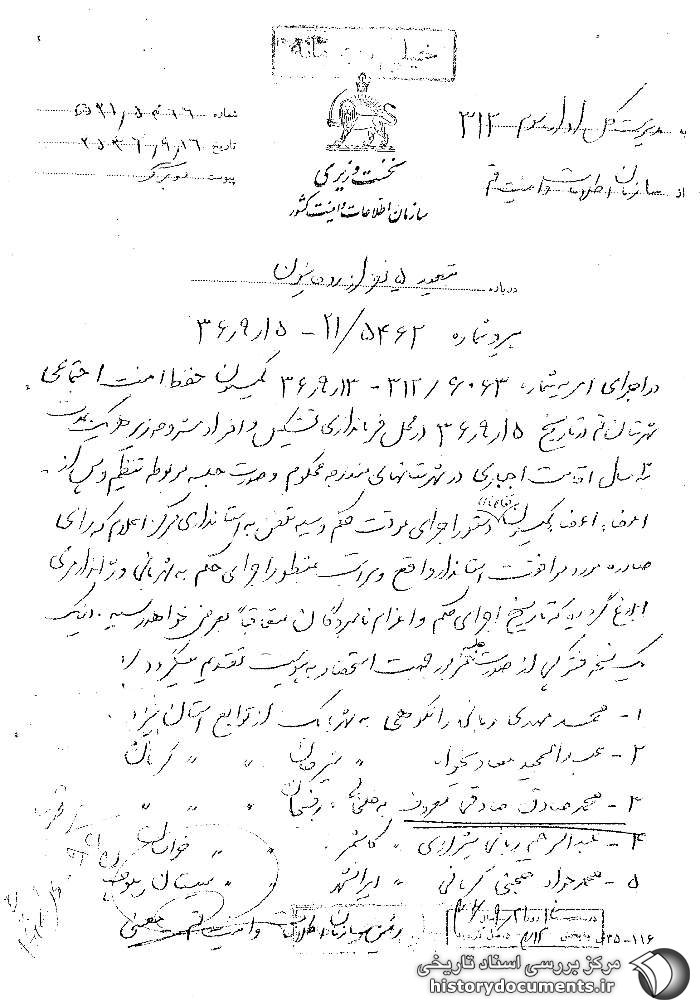 خیلی محرمانه
به مدیریت کل اداره سوم ۳۱۲
از سازمان اطلاعات و امنیت قم
نخست وزیری
سازمان اطلاعات و امنیت کشور
شماره
تاریخ ۲۵۳۶/۹/۱۶
پیوست
درباره تبعید ۵ نفر از روحانیون
پیرو شماره ۲۱/۵۴۶۲ - ۳۶/۹/۱۵
در اجرای امریه شماره ۳۱۲/۶۰۶۳ - ۳۶/۹/۱۳ کمیسیون حفظ امنیت اجتماعی
شهرستان قم در تاریخ ۳۶/۹/۱۵ در محل فرمانداری تشکیل و افراد مشروحه زیر هر یک بمدت
سه سال اقامت اجباری در شهرستانهای مندرجه محکوم و صورت جلسه مربوطه تنظیم و پس از
اعضاء کمیسیون دستور اجرای موقت حکم وسیله تلفن به استانداری مرکز اعلام که رای
صادره مورد موافقت استاندار واقع و مراتب بمنظور اجرای حکم به شهربانی و ژاندارمری
ابلاغ گردید که تاریخ اجرای حکم و اعزام نامبردگان متعاقباً بعرض خواهد رسید. اینک
یک نسخه فتوکپی از صورت جلسه جهت استحضار به پیوست تقدیم میگردد
۱- محمد مهدی ربانی رانکوهی به شهربابک از توابع استان یزد
۲- عبدالمجید معادیخواه " سیرجان " " کرمان
۳- محمد صادق صادقی معروف به خلخالی " رفسنجان " " "
۴- عبدالرحیم ربانی شیرازی " کاشمر " " خراسان
۵- محمد جواد حجتی کرمانی " ایرانشهر " " سیستان و بلوچستان
رئیس سازمان اطلاعات و امنیت قم - معینی
۳۵-۱۱۶
مرکز بررسی اسناد تاریخی
historydocuments.ir